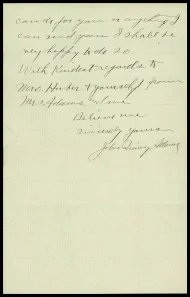 can do for you or anything I
can send you I shall be
very happy to do so.
With Kindest regards to
Mrs. & yourself from
Mrs Adams
Believe me
Sincerely yours
John Quincy Adams